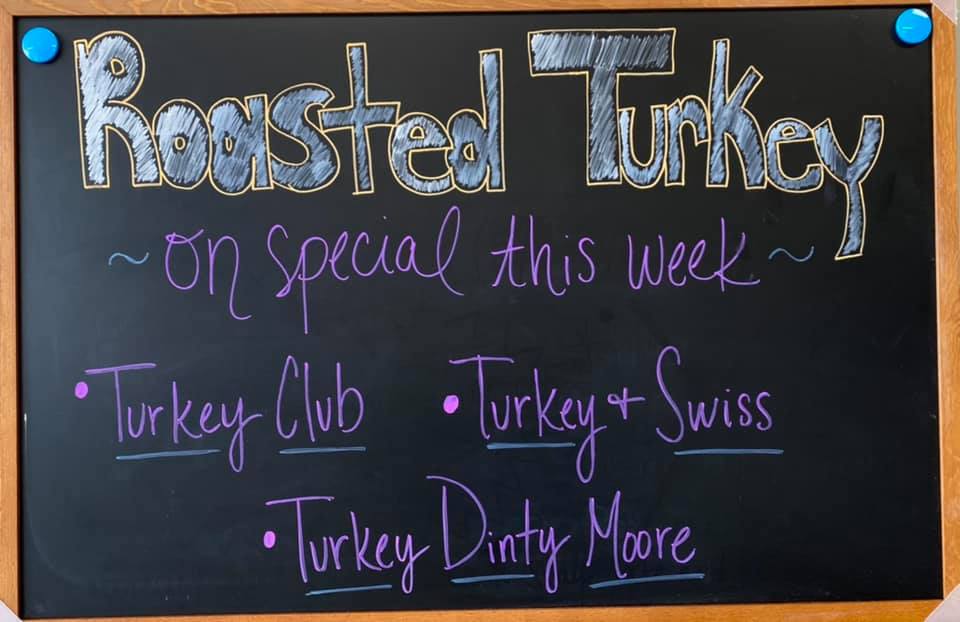 Roasted Turkey
~ on special this week ~
• Turkey Club • Turkey + Swiss
• Turkey Dinty Moore